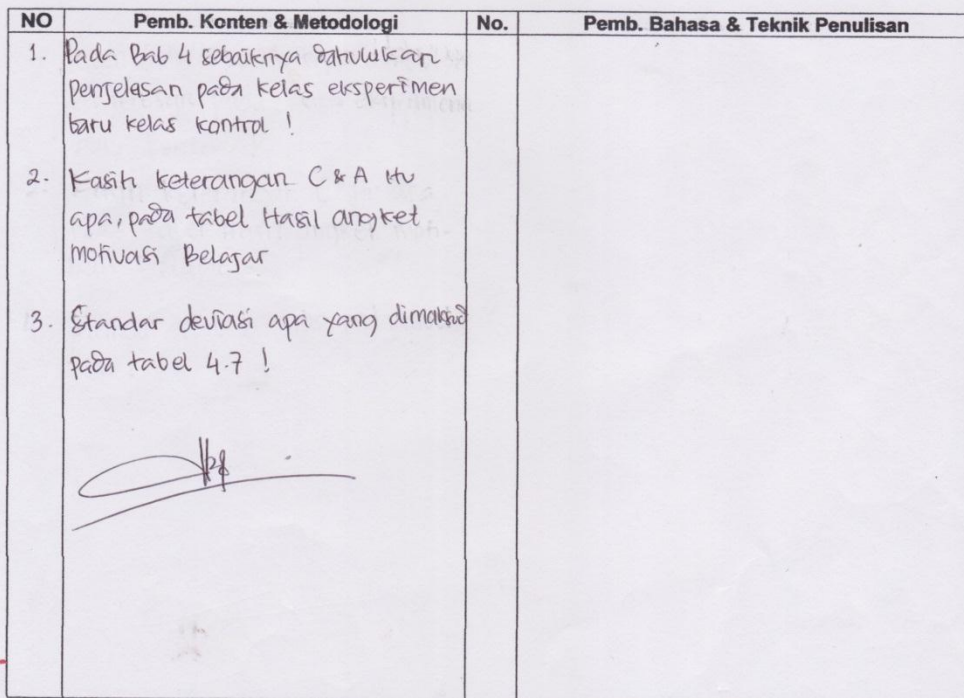 NO Pemb. Konten & Metodologi No. Pemb. Bahasa & Teknik Penulisan
1. Pada Bab 4 sebaiknya dahulukan
penjelasan pada kelas eksperimen
baru kelas kontrol !
2. Kasih keterangan C & A itu
apa, pada tabel Hasil angket
motivasi Belajar
3. Standar deviasi apa yang dimaksud
pada tabel 4.7 !